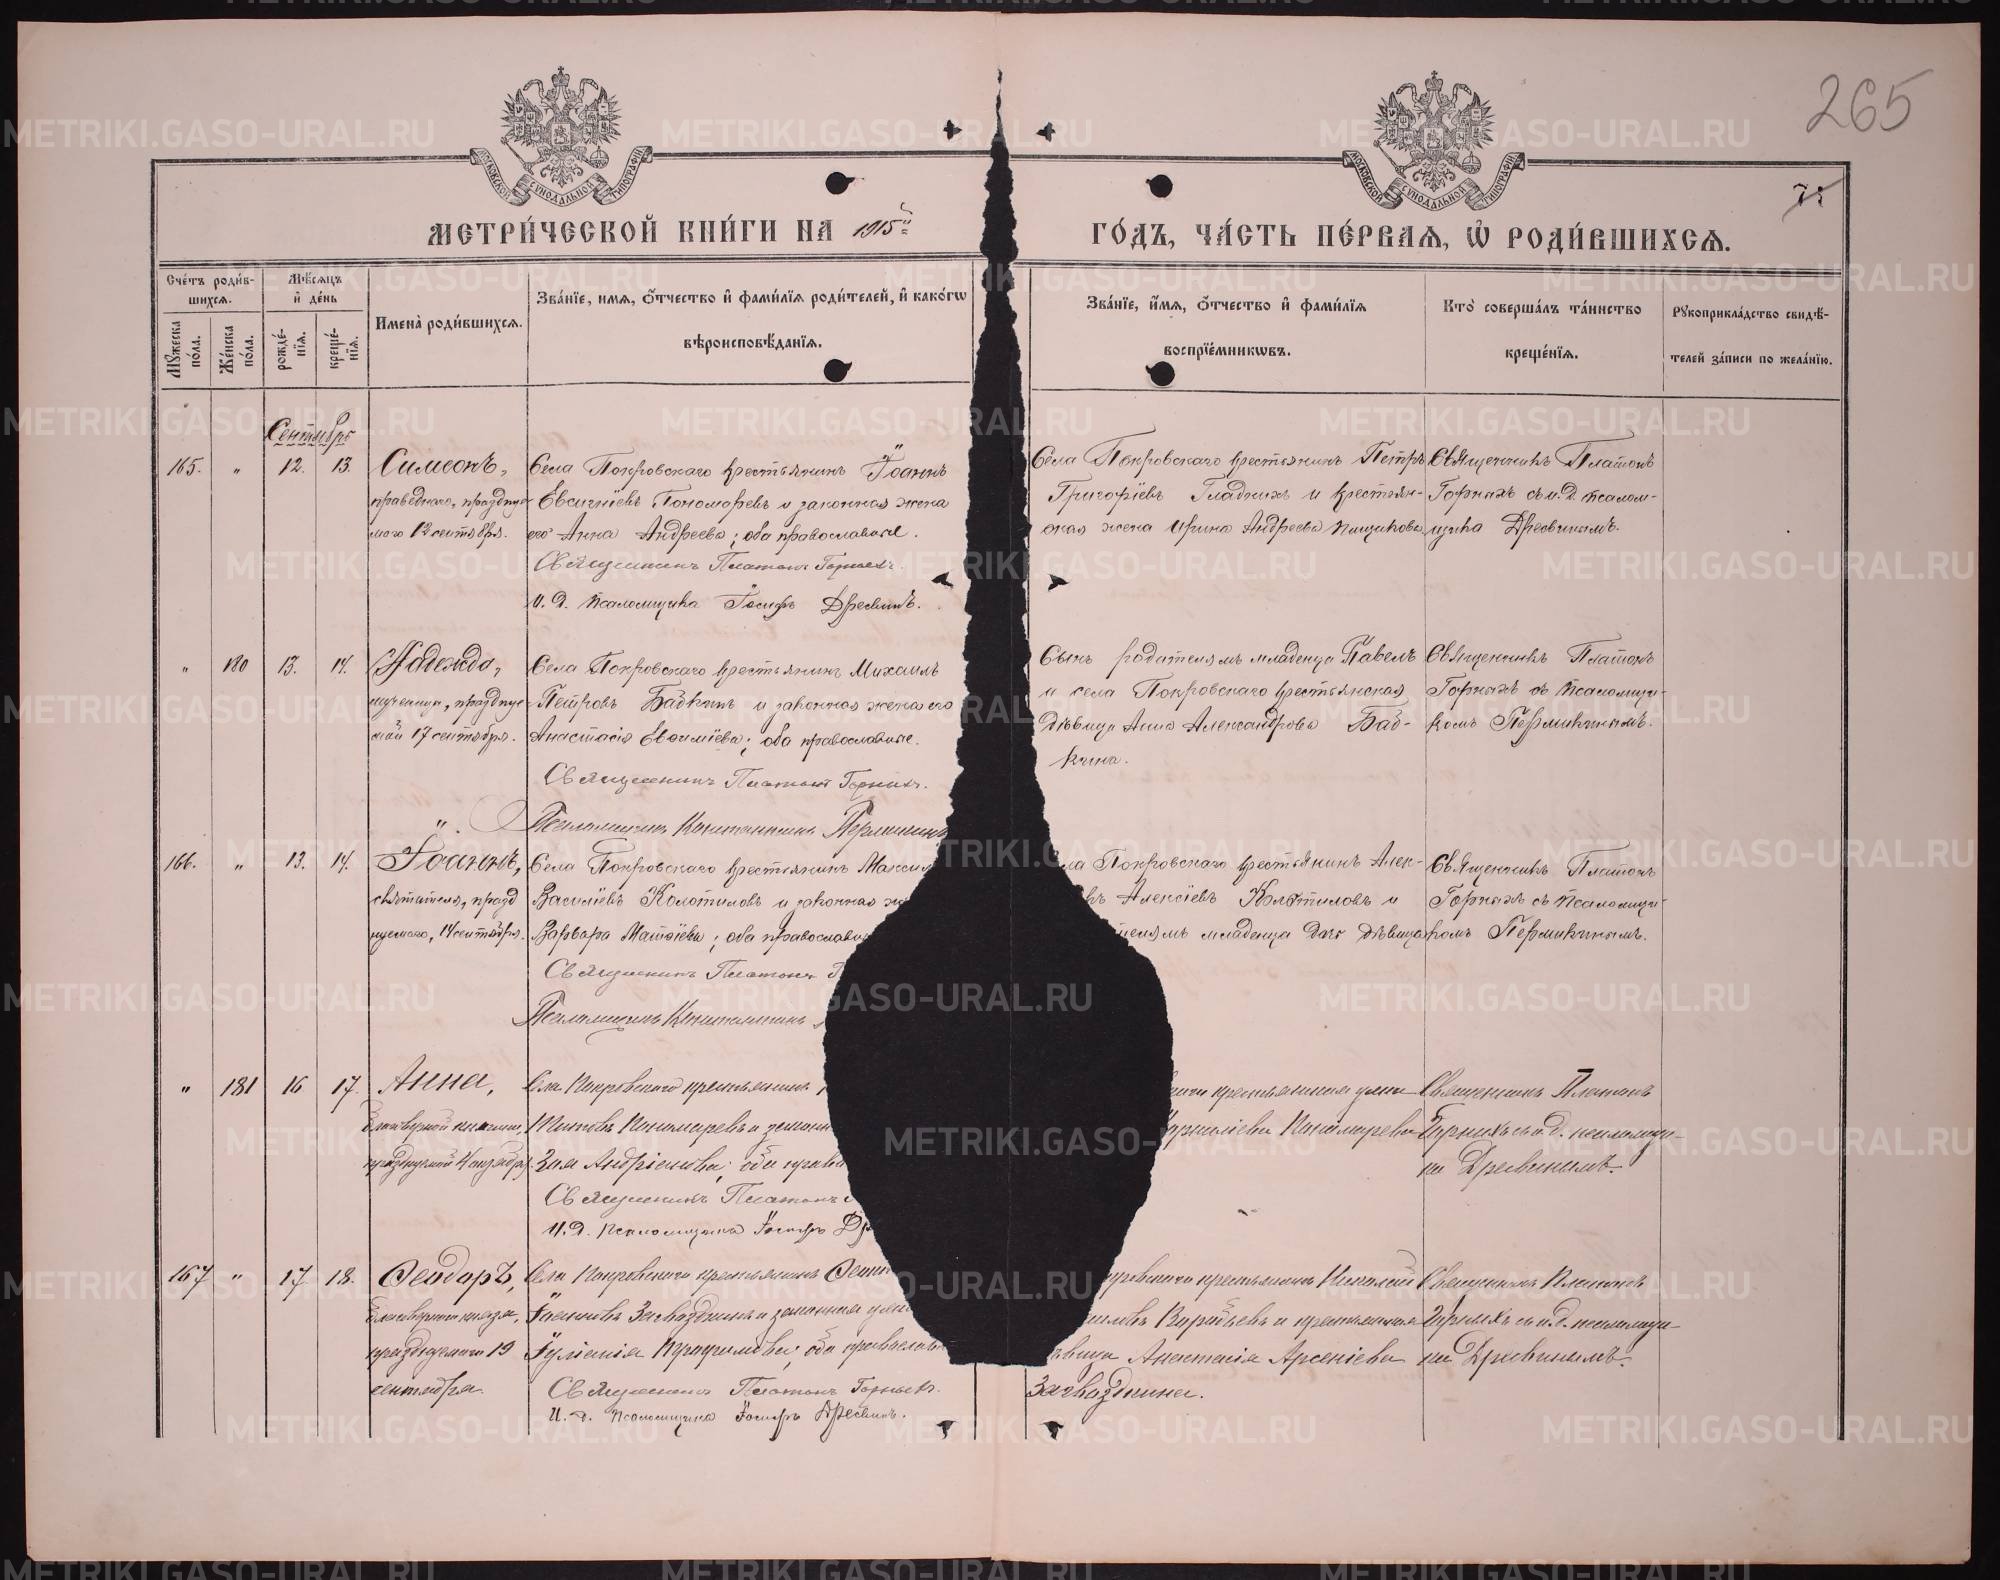 265
75
МОСКОВСКОЙ СУНОДАЛЬНОЙ ТИПОГРАФІИ
МОСКОВСКОЙ СУНОДАЛЬНОЙ ТИПОГРАФІИ
МЕТРИ́ЧЕСКОЙ КНИ́ГИ НА 1915й
ГО́ДЪ, ЧА́СТЬ ПЕ́РВАЯ, Ѡ҆ РОДИ́ВШИХСЯ.
Сче́тъ роди́в-
шихся.
Мѣ́сяцъ
и҆ де́нь
Мꙋ́жеска по́ла.
Же́нска по́ла.
рожде́-
нїя.
креще́-
нїя.
Имена̀ роди́вшихся.
Зва́нїе, имя, ѻ҆́тчество и҆ фами́лїя роди́телей, и҆ како́гѡ
вѣроисповѣ́данїя.
Зва́нїе, и҆́мя, ѻ҆́тчество и҆ фами́лїя
воспрїе́мникѡвъ.
Кто̀ соверша́лъ та́инство
креще́нїя.
Рꙋкоприкла́дство свидѣ́-
телей за́писи по жела́нїю.
Сентябрь
165. " 12. 13. Симеонъ,
праведнаго, праздну-
мого 12 сентября.
Села Покровскаго крестьянинъ Іоаннъ
Евсигніевъ Пономаревъ и законная жена
его Анна Андреева; оба православные.
Священникъ Платонъ Горныхъ.
И. д. псаломщика Іосифъ Дресвинъ.
Села Покровскаго крестьянинъ Петръ
Григоріевъ Гладкихъ и крестьян-
ская жена Ирина Андреева
Священникъ Платонъ
Горныхъ съ и. д. псалом-
щика Дресвинымъ.
" 180 13. 14. Надежда,
мученицы, праздну-
мой 17 сентября.
Села Покровскаго крестьянинъ Михаилъ
Петровъ Бабкинъ и законная жена его
Анастасія Евѳиміева; оба православные.
Священникъ Платонъ Горныхъ.
Псаломщикъ Константинъ Пермикинъ
Сынъ родителямъ младенца Павелъ
и села Покровскаго крестьянская
дѣвица Анна Александрова Баб-
кина.
Священникъ Платонъ
Горныхъ съ псаломщи-
комъ Пермикинымъ.
166. " 13. 14. Іоаннъ,
святителя, празд
нуемого, 14 сентября.
Села Покровскаго крестьянинъ Максим
Василіевъ Колотиловъ и законная же
Варвара Матѳіева; оба православн
Священникъ Платонъ Г
Псаломщикъ Константинъ
ела Покровскаго крестьянинъ Алек-
Алексіевъ Колотиловъ и
телямъ младенца дочь дѣвица
Священникъ Платонъ
Горныхъ съ псаломщи-
комъ Пермикинымъ.
" 181 16 17. Анна,
благовѣрной княгини,
празднуемой
Села Покровскаго крестьянинъ
Титовъ Пономаревъ и законн
Зоя Андріанова; оба правос
Священникъ Платонъ
И. д. псаломщика Іосифъ Др
крестьянская
Корниліева Пономарева
Священникъ Платонъ
Горныхъ съ и. д. псаломщи-
ка Дресвинымъ.
167 " 17 18. Ѳеодоръ,
благовѣрного князя,
празднуемого 19
сентября.
Села Покровскаго крестьянинъ
Іоанновъ Загвоздкинъ и законная
Іуліанія оба православ
Священникъ Платонъ Горныхъ.
И. д. псаломщика Іосифъ Дресвинъ.
кровскаго крестьянинъ Николай
Воробьевъ и крестьянская
дѣвица Анастасія Арсеніева
Загвоздкина.
Священникъ Платонъ
Горныхъ съ и. д. псаломщи-
ка Дресвинымъ.
METRIKI.GASO-URAL.RU